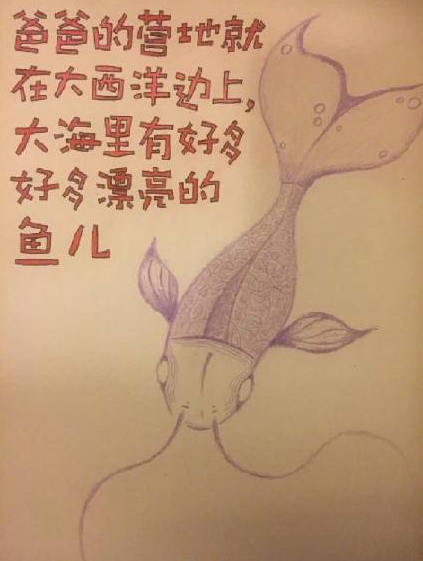 爸爸的营地就
在大西洋边上,
大海里有好多
好多漂亮的
鱼儿